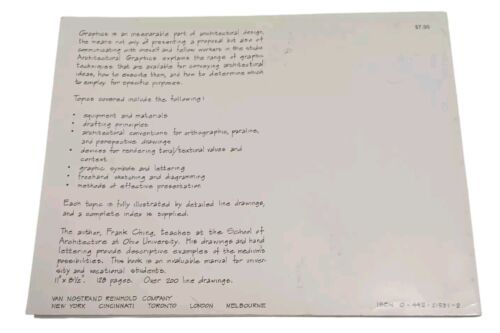 $7.95
Graphics is an inseparable part of architectural design,
the means not only of presenting a proposal but also of
communicating with oneself and fellow workers in the studio
Architectural Graphics explains the range of graphic
techniques that are available for conveying architectural
ideas, how to execute them, and how to determine which
to employ for specific purposes.
Topics covered include the following:
• equipment and materials
• drafting principles
• architectural conventions for orthographic, paraline,
and perspective drawings
• devices for rendering tonal/textural values and
context
• graphic symbols and lettering
• freehand sketching and diagramming
• methods of effective presentation
Each topic is fully illustrated by detailed line drawings,
and a complete index is supplied.
The author, Frank Ching, teaches at the School of
Architecture at Ohio University. His drawings and hand
lettering provide descriptive examples of the medium's
possibilities. This book is an invaluable manual for univer-
sity and vocational students.
11" x 8½". 128 pages. Over 200 line drawings.
VAN NOSTRAND REINHOLD COMPANY
NEW YORK CINCINNATI TORONTO LONDON MELBOURNE
ISBN 0-442-21531-2